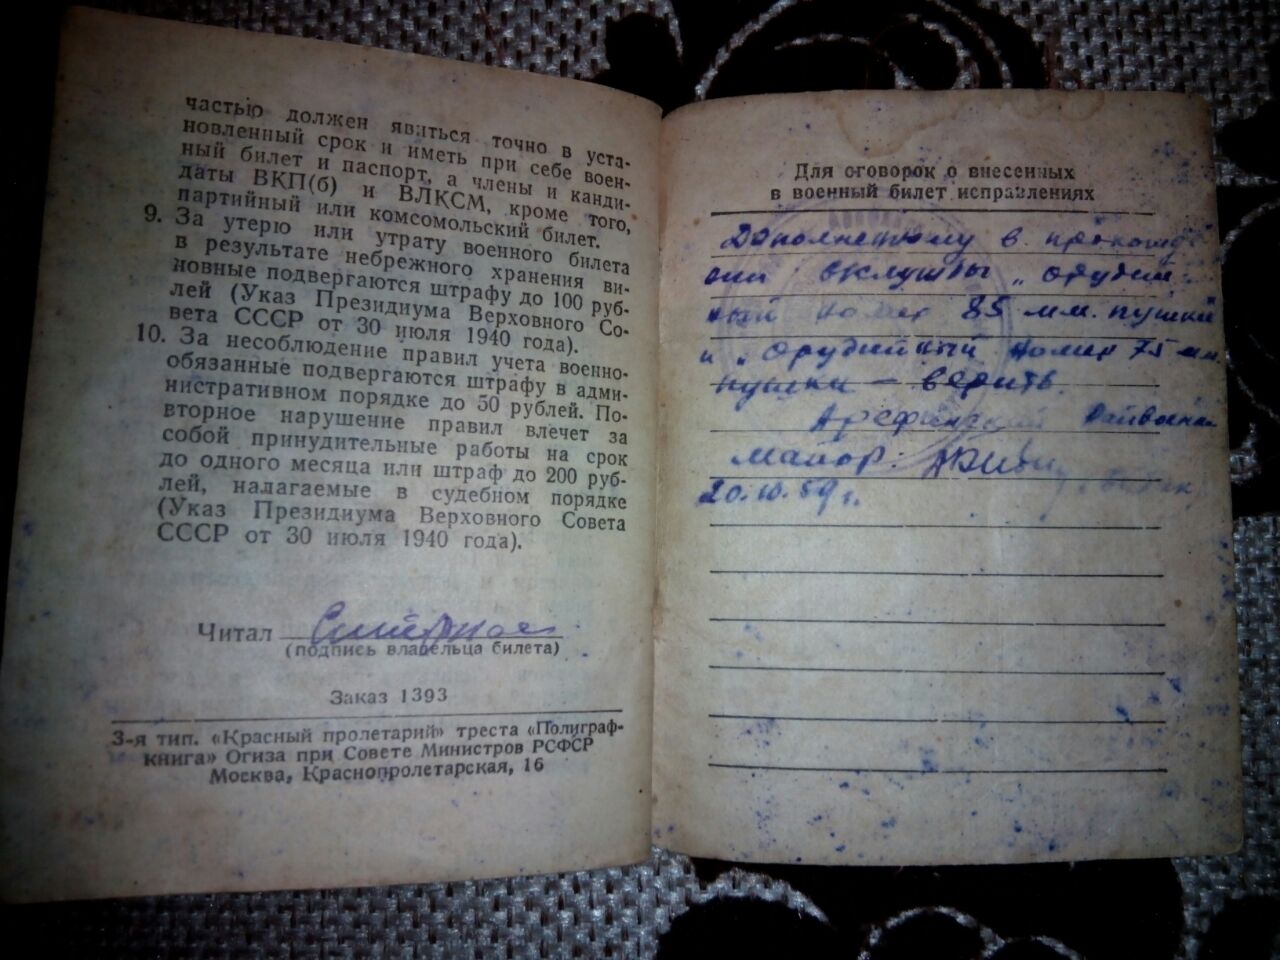 частью должен явиться точно в уста-
новленный срок и иметь при себе воен-
ный билет и паспорт, а члены и канди-
даты ВКП(б) и ВЛКСМ, кроме того,
партийный или комсомольский билет.
9. За утерю или утрату военного билета
в результате небрежного хранения ви-
новные подвергаются штрафу до 100 руб-
лей (Указ Президиума Верховного Со-
вета СССР от 30 июля 1940 года).
10. За несоблюдение правил учета военно-
обязанные подвергаются штрафу в адми-
нистративном порядке до 50 рублей. По-
вторное нарушение правил влечет за
собой принудительные работы на срок
до одного месяца или штраф до 200 руб-
лей, налагаемые в судебном порядке
(Указ Президиума Верховного Совета
СССР от 30 июля 1940 года).
Читал
(подпись владельца билета)
Заказ 1393
3-я тип. «Красный пролетарий» треста «Полиграф-
книга» Огиза при Совете Министров РСФСР
Москва, Краснопролетарская, 16
Для оговорок о внесенных
в военный билет исправлениях
Дополненному в прохожде
нии службы „орудий-
ный номер 85 мм. пушки
и „орудийный номер 75 мм.
пушки — верить
майор:
20.10.59 г.